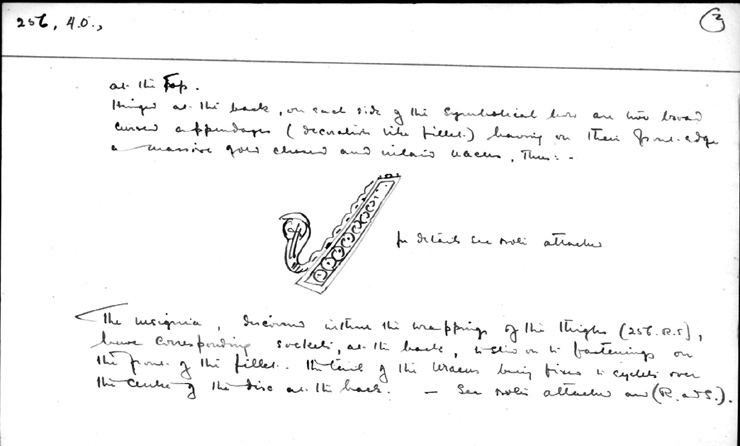 256, 4.O.,
3
at the Top.
Hinged at the back, on each side of the symbolical bow are two broad
curved appendages (decoration like fillet) having on their front-edge
a massive gold chased and inlaid uraeus, Thus: -
for details see notes attached
The insignia, discovered within the wrappings of the thighs (256. R.S),
have corresponding sockets, at the back, to slip on to fastenings on
the front of the fillet. The tail of the Uraeus being fixed to over
the centre of the disc at the back. — See notes attached and (R. and S.).